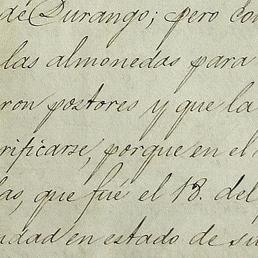 de Durango; pero con
las almonedas para
ron postores y que la
rificarse, porque en el
as, que fué el 13. del
idad en estado de su